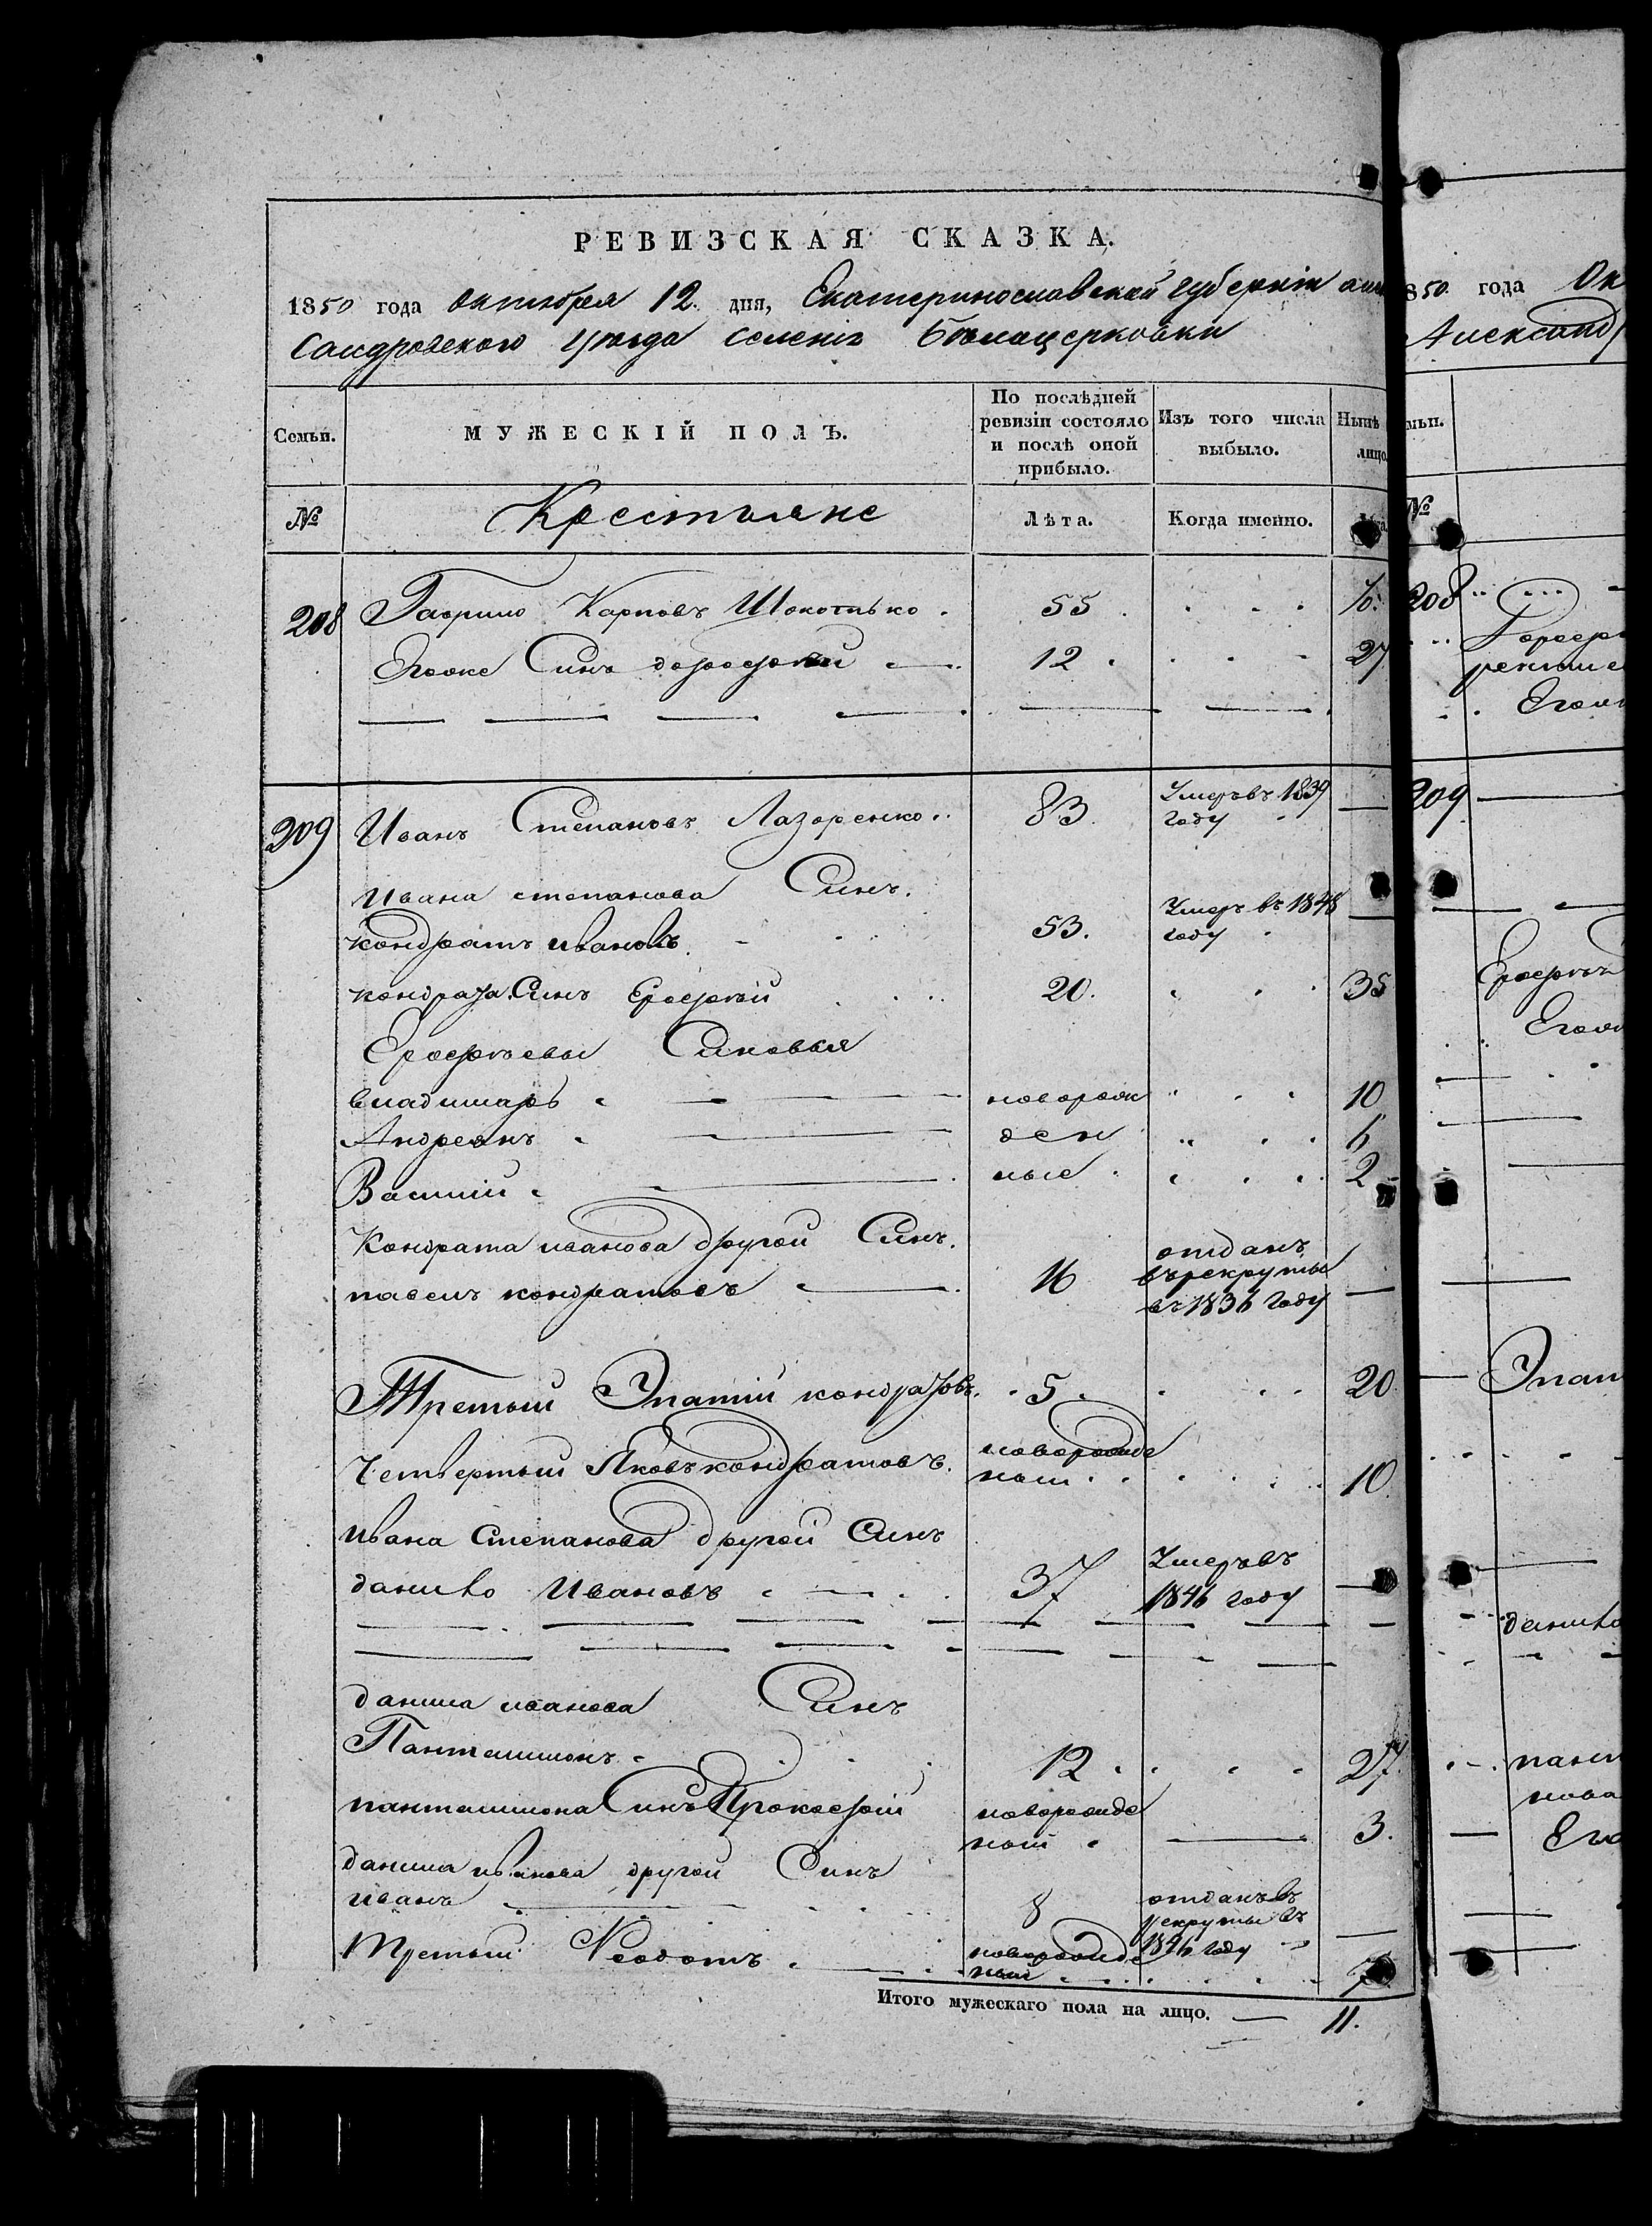 РЕВИЗСКАЯ СКАЗКА.
1850 года октября 12. дня, Екатеринославской губернiи алек
сандровского уѣзда селенiя Бѣлацерковки
Семьи. МУЖЕСКIЙ ПОЛЪ. По послѣдней ревизiи состояло и послѣ оной прибыло. Изъ того числа выбыло. Нынѣ лицо
№ Крестьяне Лѣта. Когда именно. Лѣта
208 Гаврило Карповъ 55
Егоже Синъ дорофей 12 27
209 Иванъ Степановъ Лазаренко 83. Умеръ въ 1839 году
Ивана степанова Синъ.
кондратъ ивановъ 53. Умеръ въ 1848 году
кондрата Синъ Ерофѣй 20. 35
Ерофѣевы Синовья
владимиръ новорож 10
Андреянъ ден 6
Василiй ные 2
Кондрата иванова другой Синъ.
павелъ кондратовъ 16 отданъ въ рекруты въ 1836 году
Третый Эпатiй кондратовъ. 5. 20
Четвертый Яковъ кондратовъ. новорожде ный 10
Ивана Степанова другой Синъ
данило Ивановъ 37 Умеръ въ 1846 году
данила иванова Синъ
Панталимонъ 12 27.
панталимона Синъ Прокофiй новорожде ный 3.
данила иванова другой Синъ
иванъ 8 отданъ въ рекруты въ 1846 году
Третый Феодотъ новорожде ный 7
Итого мужескаго пола на лицо. 11.
850. года Ок
Александ
мьи.
№
208
Егои
209
Егои
Эпат
данило
пант
нова
Его